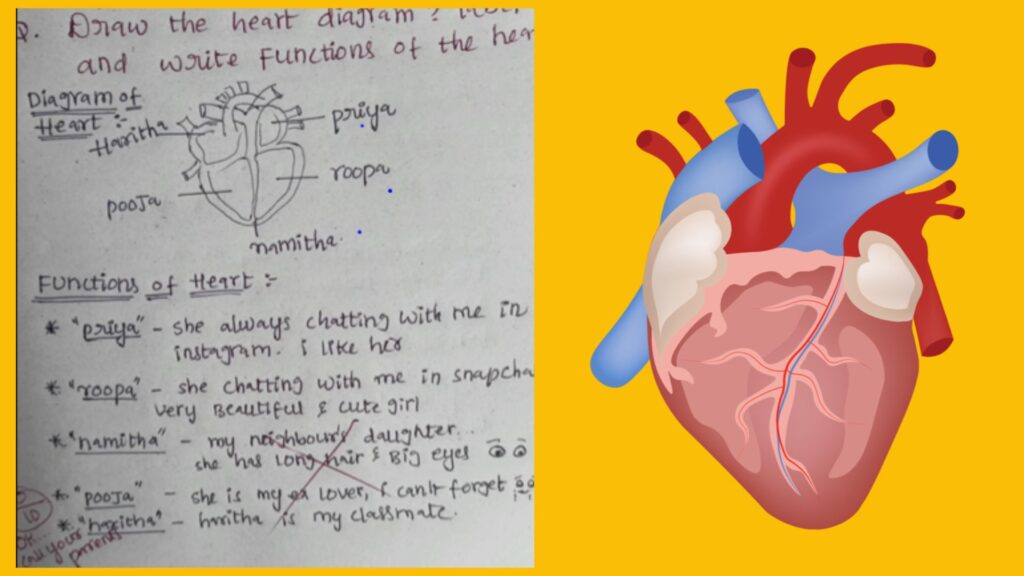 Q. Draw the heart diagram ?
and write Functions of the hear
Diagram of
Heart :-
Haritha
priya
pooja
roopa
namitha.
Functions of Heart :-
* "priya" - she always chatting with me in
instagram. i like her
* "roopa" - she chatting with me in snapcha
very Beautiful & cute girl
* "namitha" - my neighbour's daughter..
she has long hair & Big eyes
* "pooja" - she is my ex lover, i can't forget
* "haritha" - haritha is my classmate.
10
call your
parents